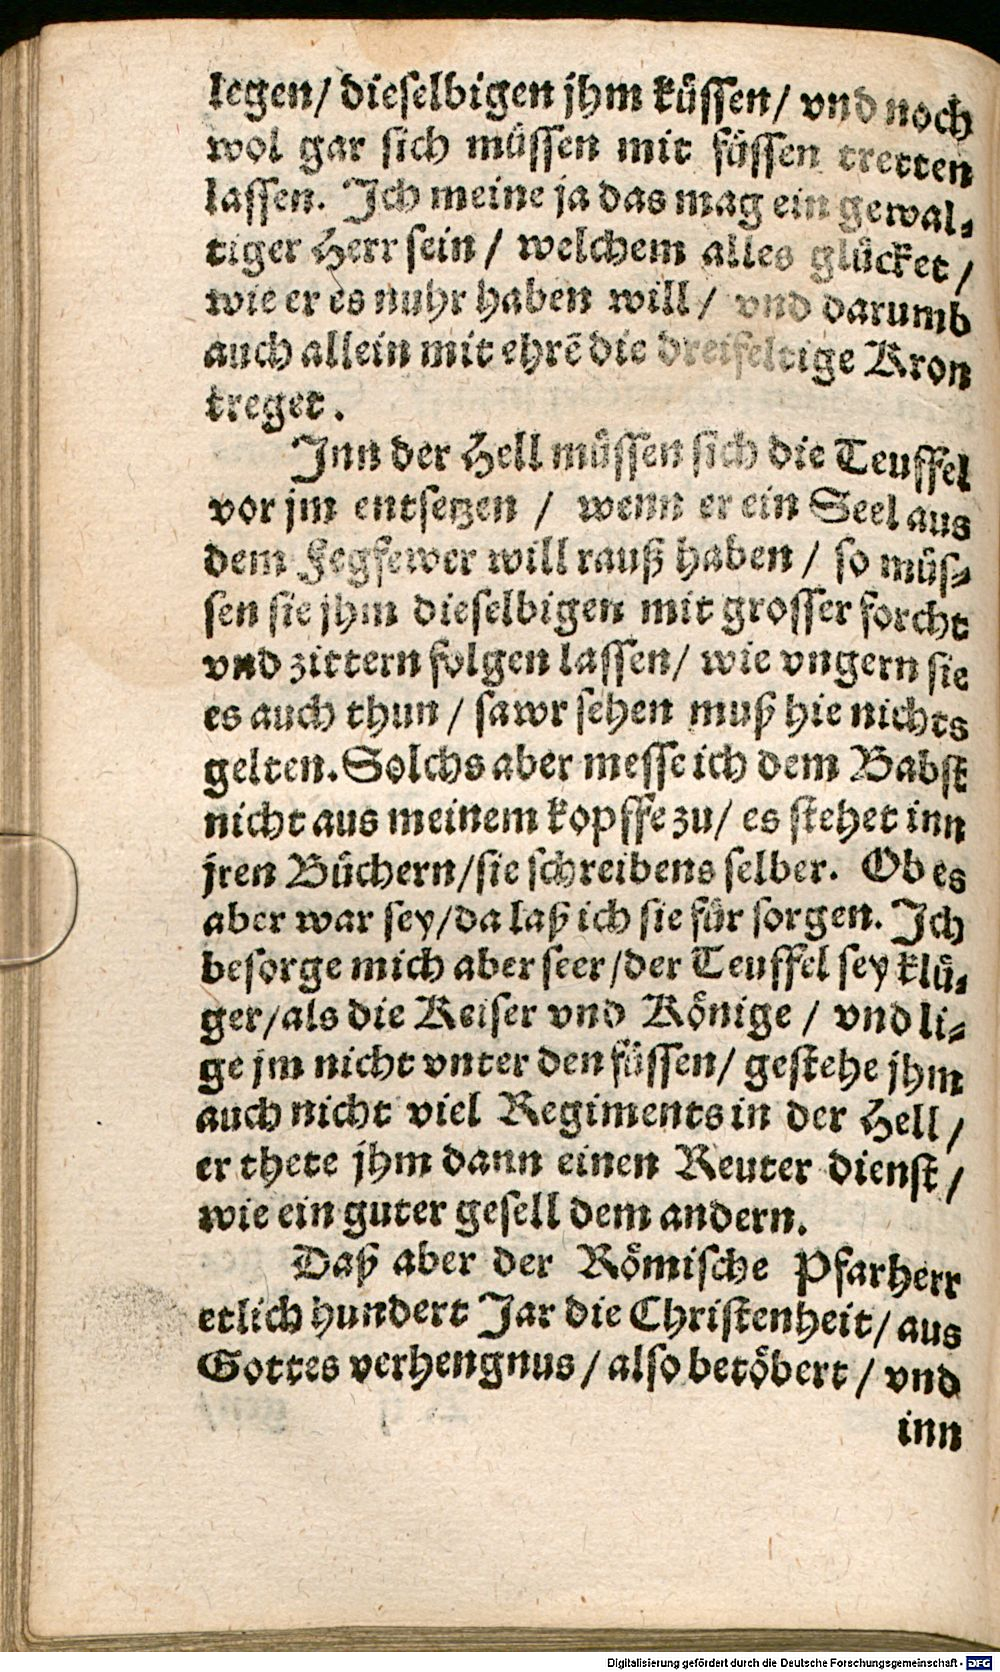 legen/ dieselbigen jhm küssen/ vnd noch
wol gar sich müssen mit füssen tretten
lassen. Ich meine ja das mag ein gewal-
tiger Herr sein / welchem alles glücket /
wie er es nuhr haben will / vnd darumb
auch allein mit ehrẽ die dreifeltige Kron
treget.
Inn der Hell müssen sich die Teuffel
vor jm entsetzen / wenn er ein Seel aus
dem Fegfewer will rauß haben / so müs-
sen sie jhm dieselbigen mit grosser forcht
vnd zittern folgen lassen/ wie vngern sie
es auch thun / sawr sehen muß hie nichts
gelten. Solchs aber messe ich dem Babst
nicht aus meinem kopffe zu/ es stehet inn
jren Büchern/sie schreibens selber. Ob es
aber war sey/da laß ich sie für sorgen. Ich
besorge mich aber seer/der Teuffel sey klü-
ger/als die Keiser vnd Könige / vnd li-
ge jm nicht vnter den füssen/ gestehe jhm
auch nicht viel Regiments in der Hell /
er thete jhm dann einen Reuter dienst /
wie ein guter gesell dem andern.
Daß aber der Römische Pfarherr
etlich hundert Jar die Christenheit/ aus
Gottes verhengnus / also betöbert / vnd
inn
Digitalisierung gefördert durch die Deutsche Forschungsgemeinschaft - DFG